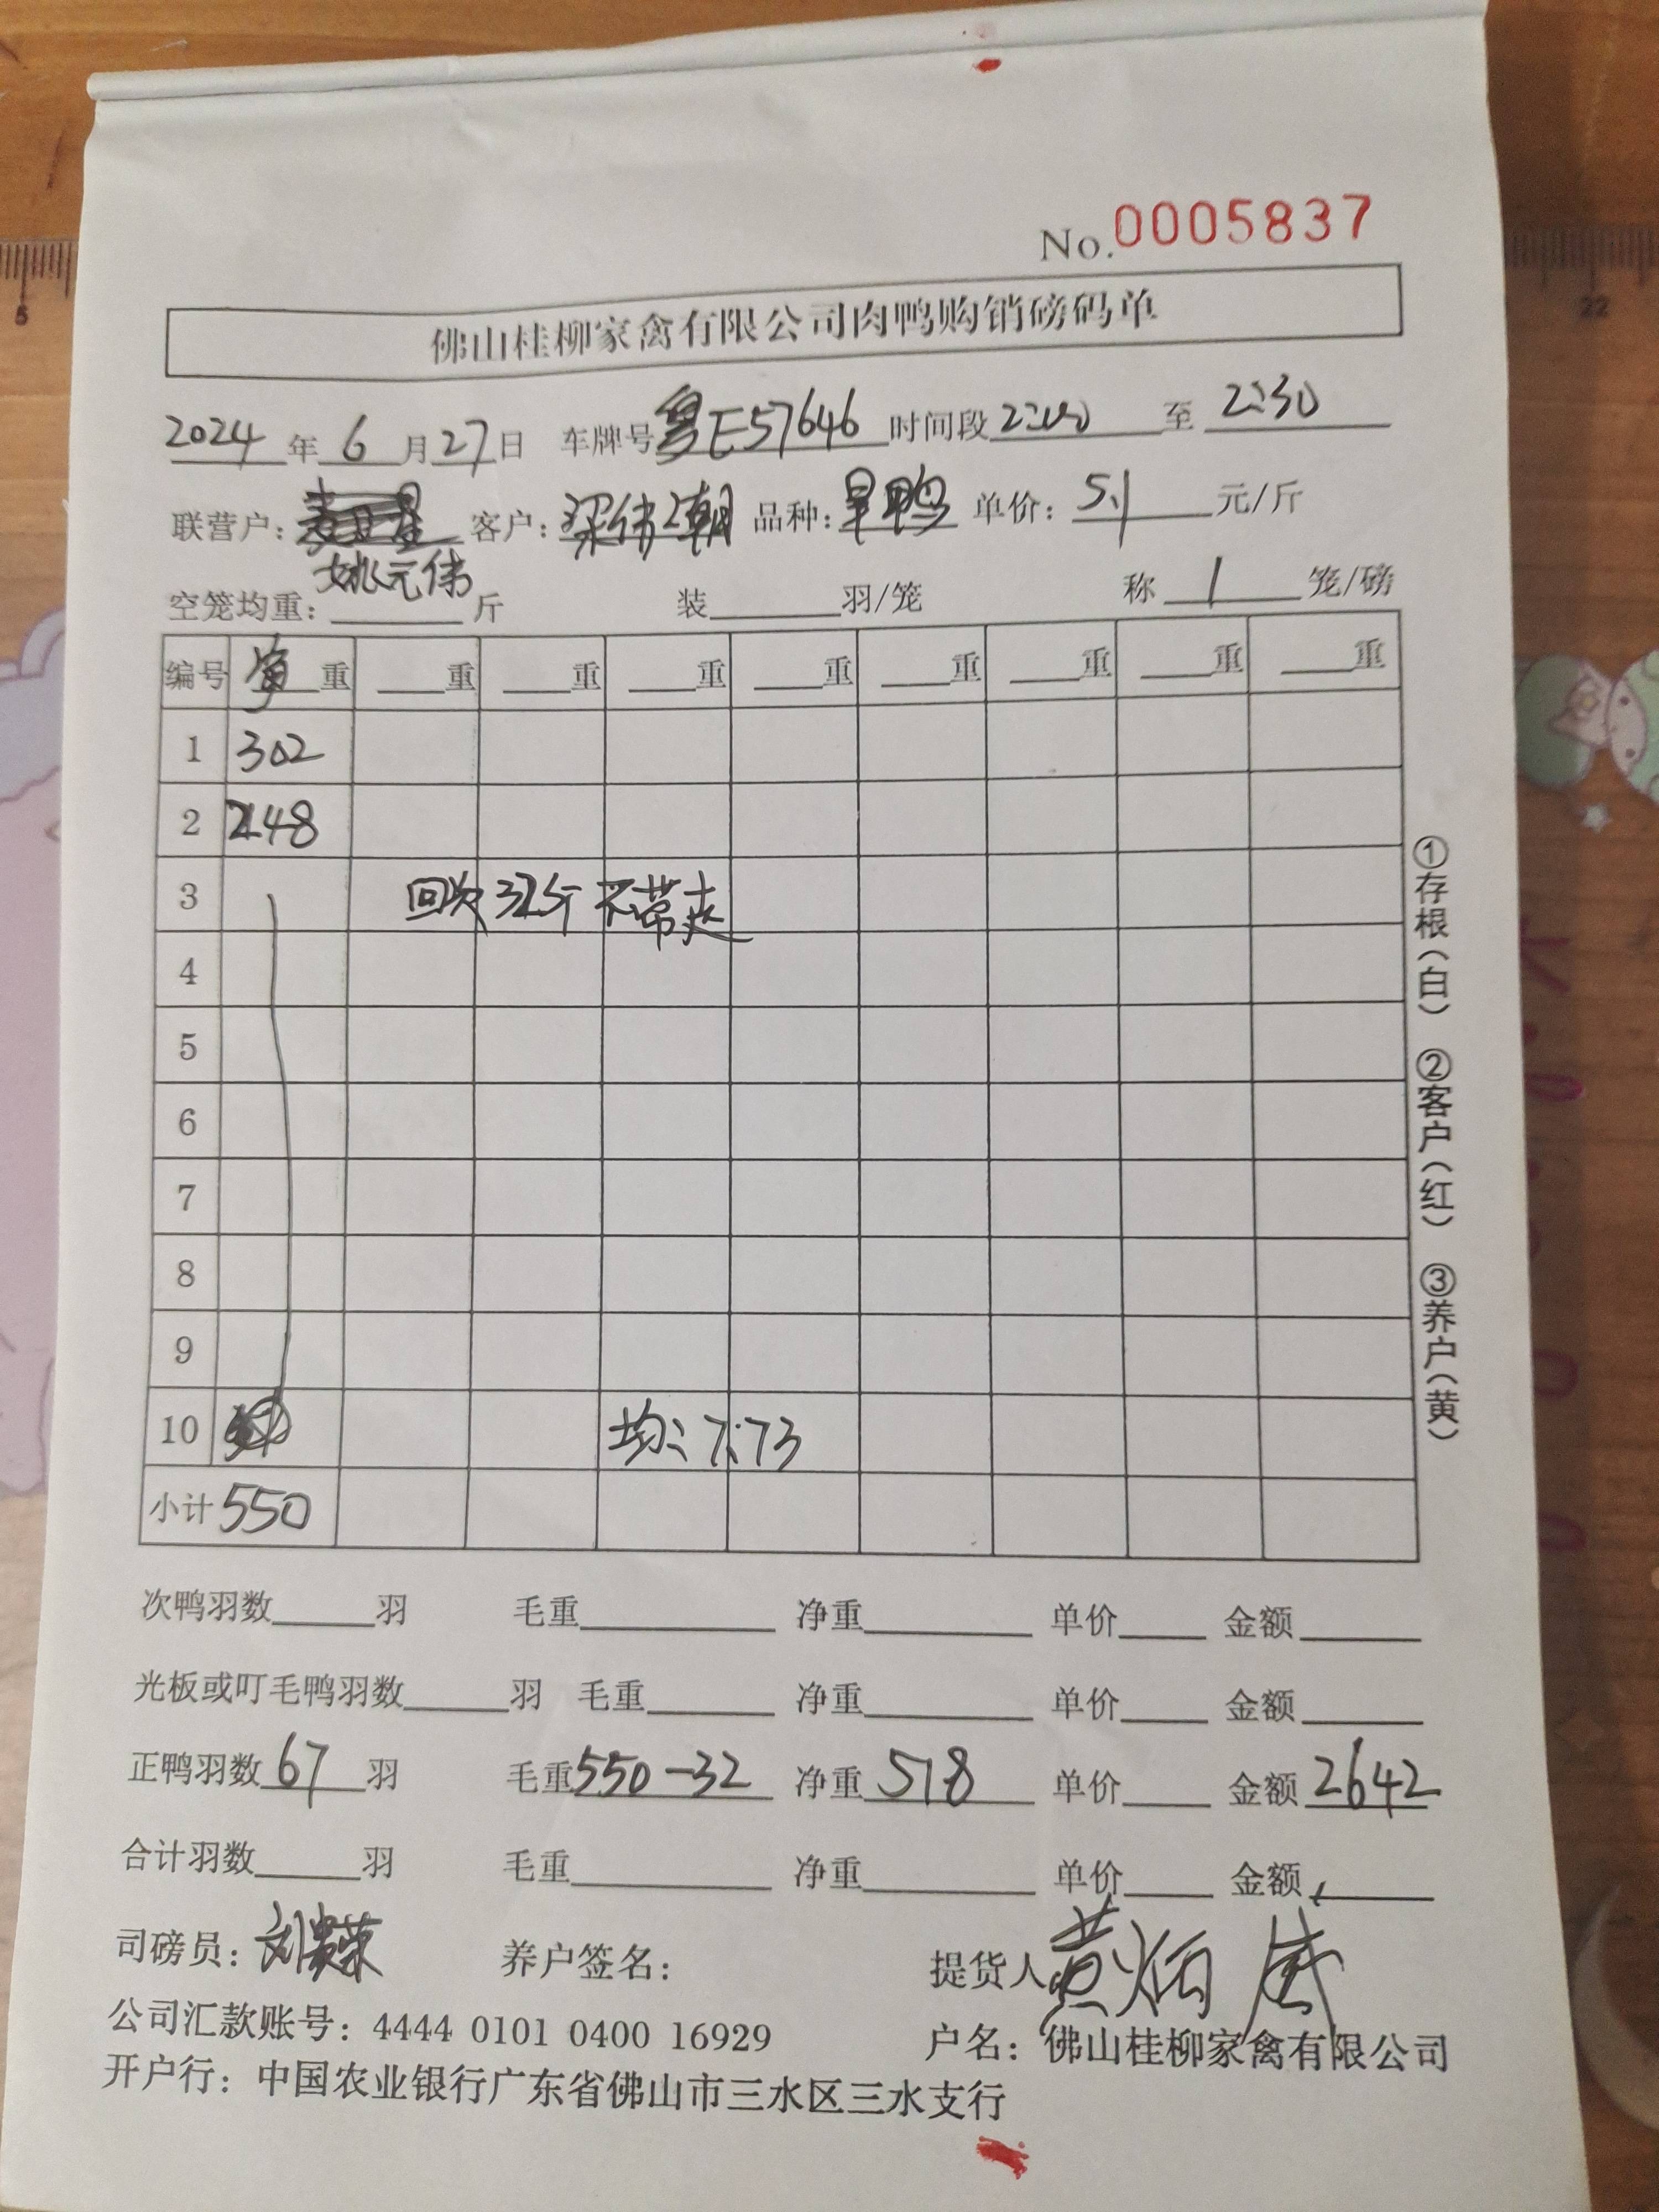 No. 0005837
佛山桂柳家禽有限公司肉鸭购销磅码单
2024 年 6 月 27 日 车牌号 粤E57646 时间段 2:00 至 2:30
联营户: 客户: 梁伟潮 品种: 旱鸭 单价: 5.1 元/斤
姚元伟
空笼均重: 斤 装 羽/笼 称 1 笼/磅
编号 净重 重 重 重 重 重 重 重 重
1 302
2 248
3 回次 32斤 不带走
4
5
6
7
8
9
10 均: 7.73
小计 550
次鸭羽数 羽 毛重 净重 单价 金额
光板或叮毛鸭羽数 羽 毛重 净重 单价 金额
正鸭羽数 67 羽 毛重 550-32 净重 518 单价 金额 2642
合计羽数 羽 毛重 净重 单价 金额
司磅员: 养户签名: 提货人
公司汇款账号: 4444 0101 0400 16929 户名: 佛山桂柳家禽有限公司
开户行: 中国农业银行广东省佛山市三水区三水支行
①存根(白) ②客户(红) ③养户(黄)
5
22